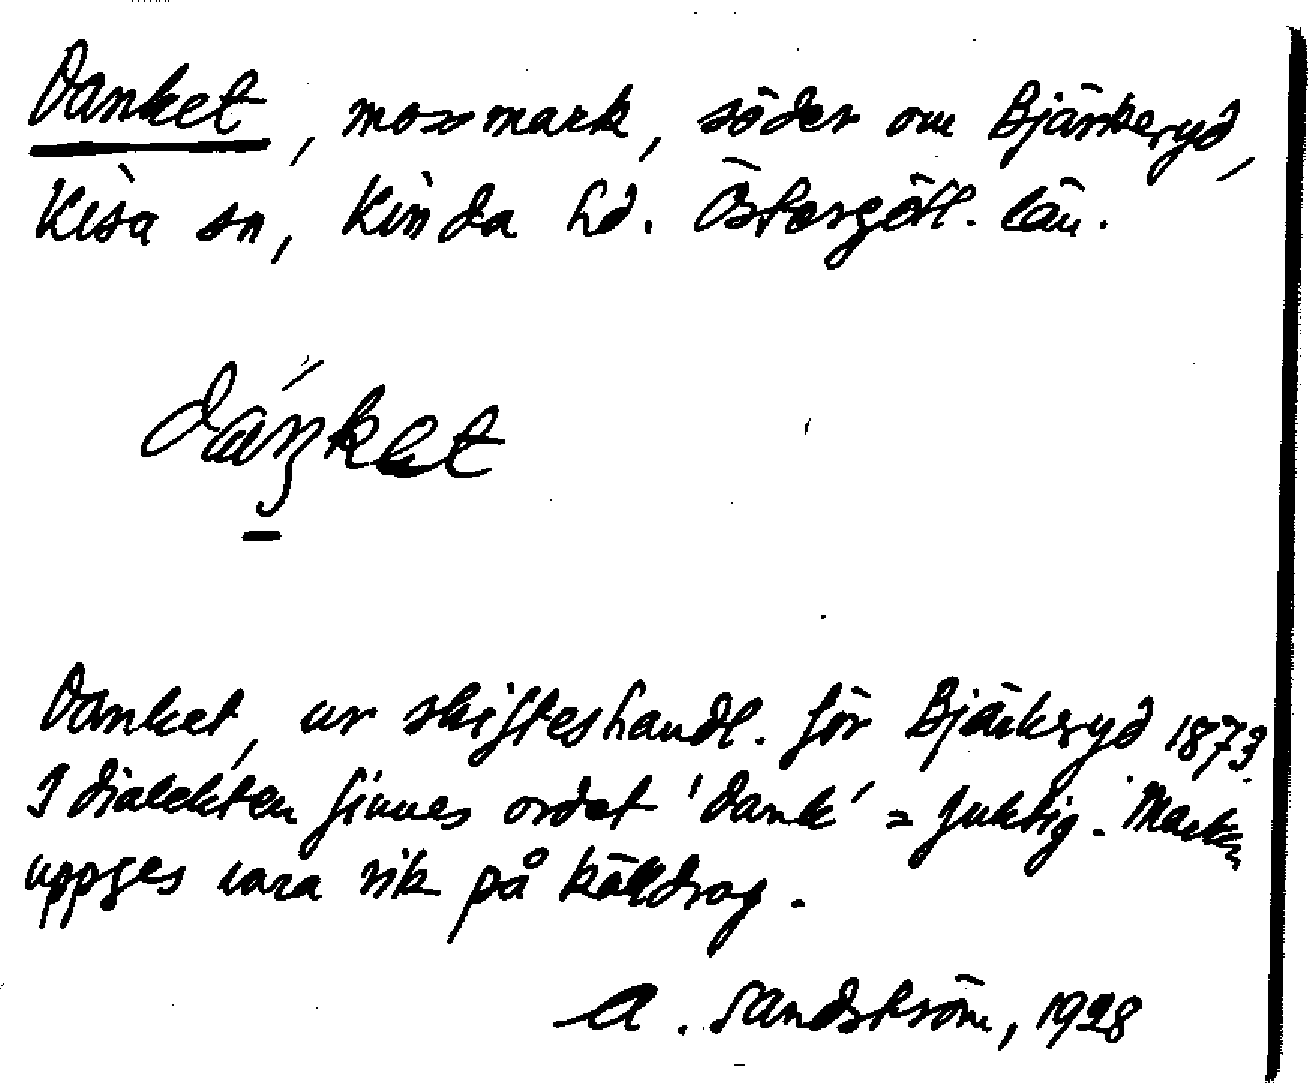 Danket, mossmark, söder om Bjärkeryd,
Kisa sn, Kinda hd. Östergötl. län.
dáŋket
Danket, ur skifteshandl. för Bjärkeryd 1873.
I dialekten finnes ordet 'dank' = fuktig. Marken
uppges vara rik på källdrag.
A. Sandström, 1928